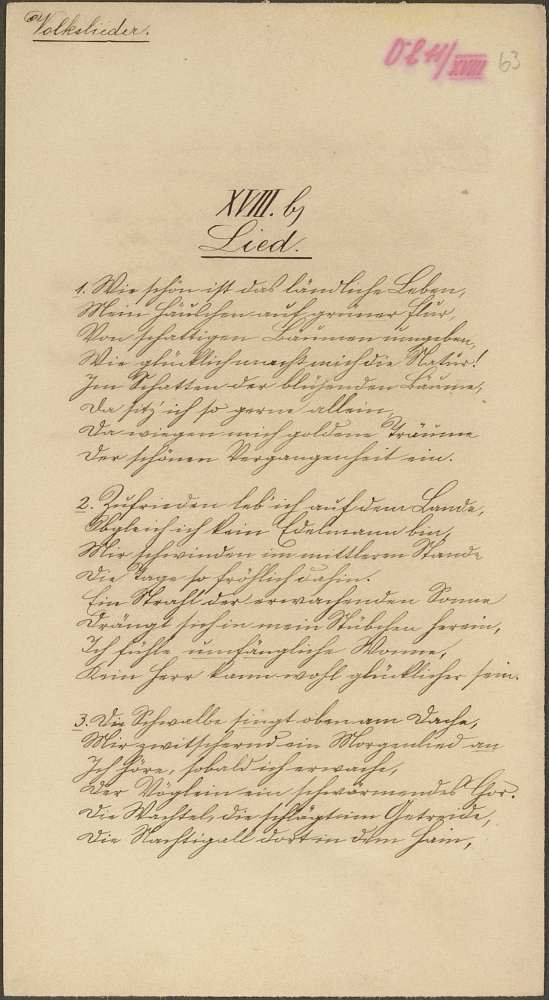 Volkslieder.
XVIII
63
XVIII. b)
Lied.
1. Wie schön ist das ländliche Leben,
Mein Häuschen auf grüner Flur,
Von schattigen Bäumen umgeben,
Wie glücklich macht mich die Natur!
Im Schatten der blühenden Bäume,
Da sitz' ich so gerne allein,
Da wiegen mich goldene Träume
Der schönen Vergangenheit ein.
2. Zufrieden leb' ich auf dem Lande,
Obgleich ich kein Edelmann bin,
Mir schwinden im mittlerm Stande
Die Tage so fröhlich dahin.
Ein Strahl der erwachenden Sonne
Drängt sich in mein Stübchen herein,
Ich fühle umfängliche Wonne,
Kein Herr kann wohl glücklicher sein.
3. Die Schwalbe singt oben am Dache,
Mir zwitschernd ein Morgenlied an
Ich höre, sobald ich erwache,
Der Vöglein ein schwärmendes Chor.
Die Wachtel, die schlägt im Getreide,
Die Nachtigall dort in dem Hain,